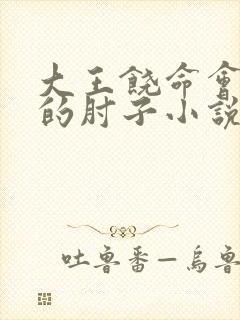 大王饒命會
的肘子小說
吐魯番—烏魯